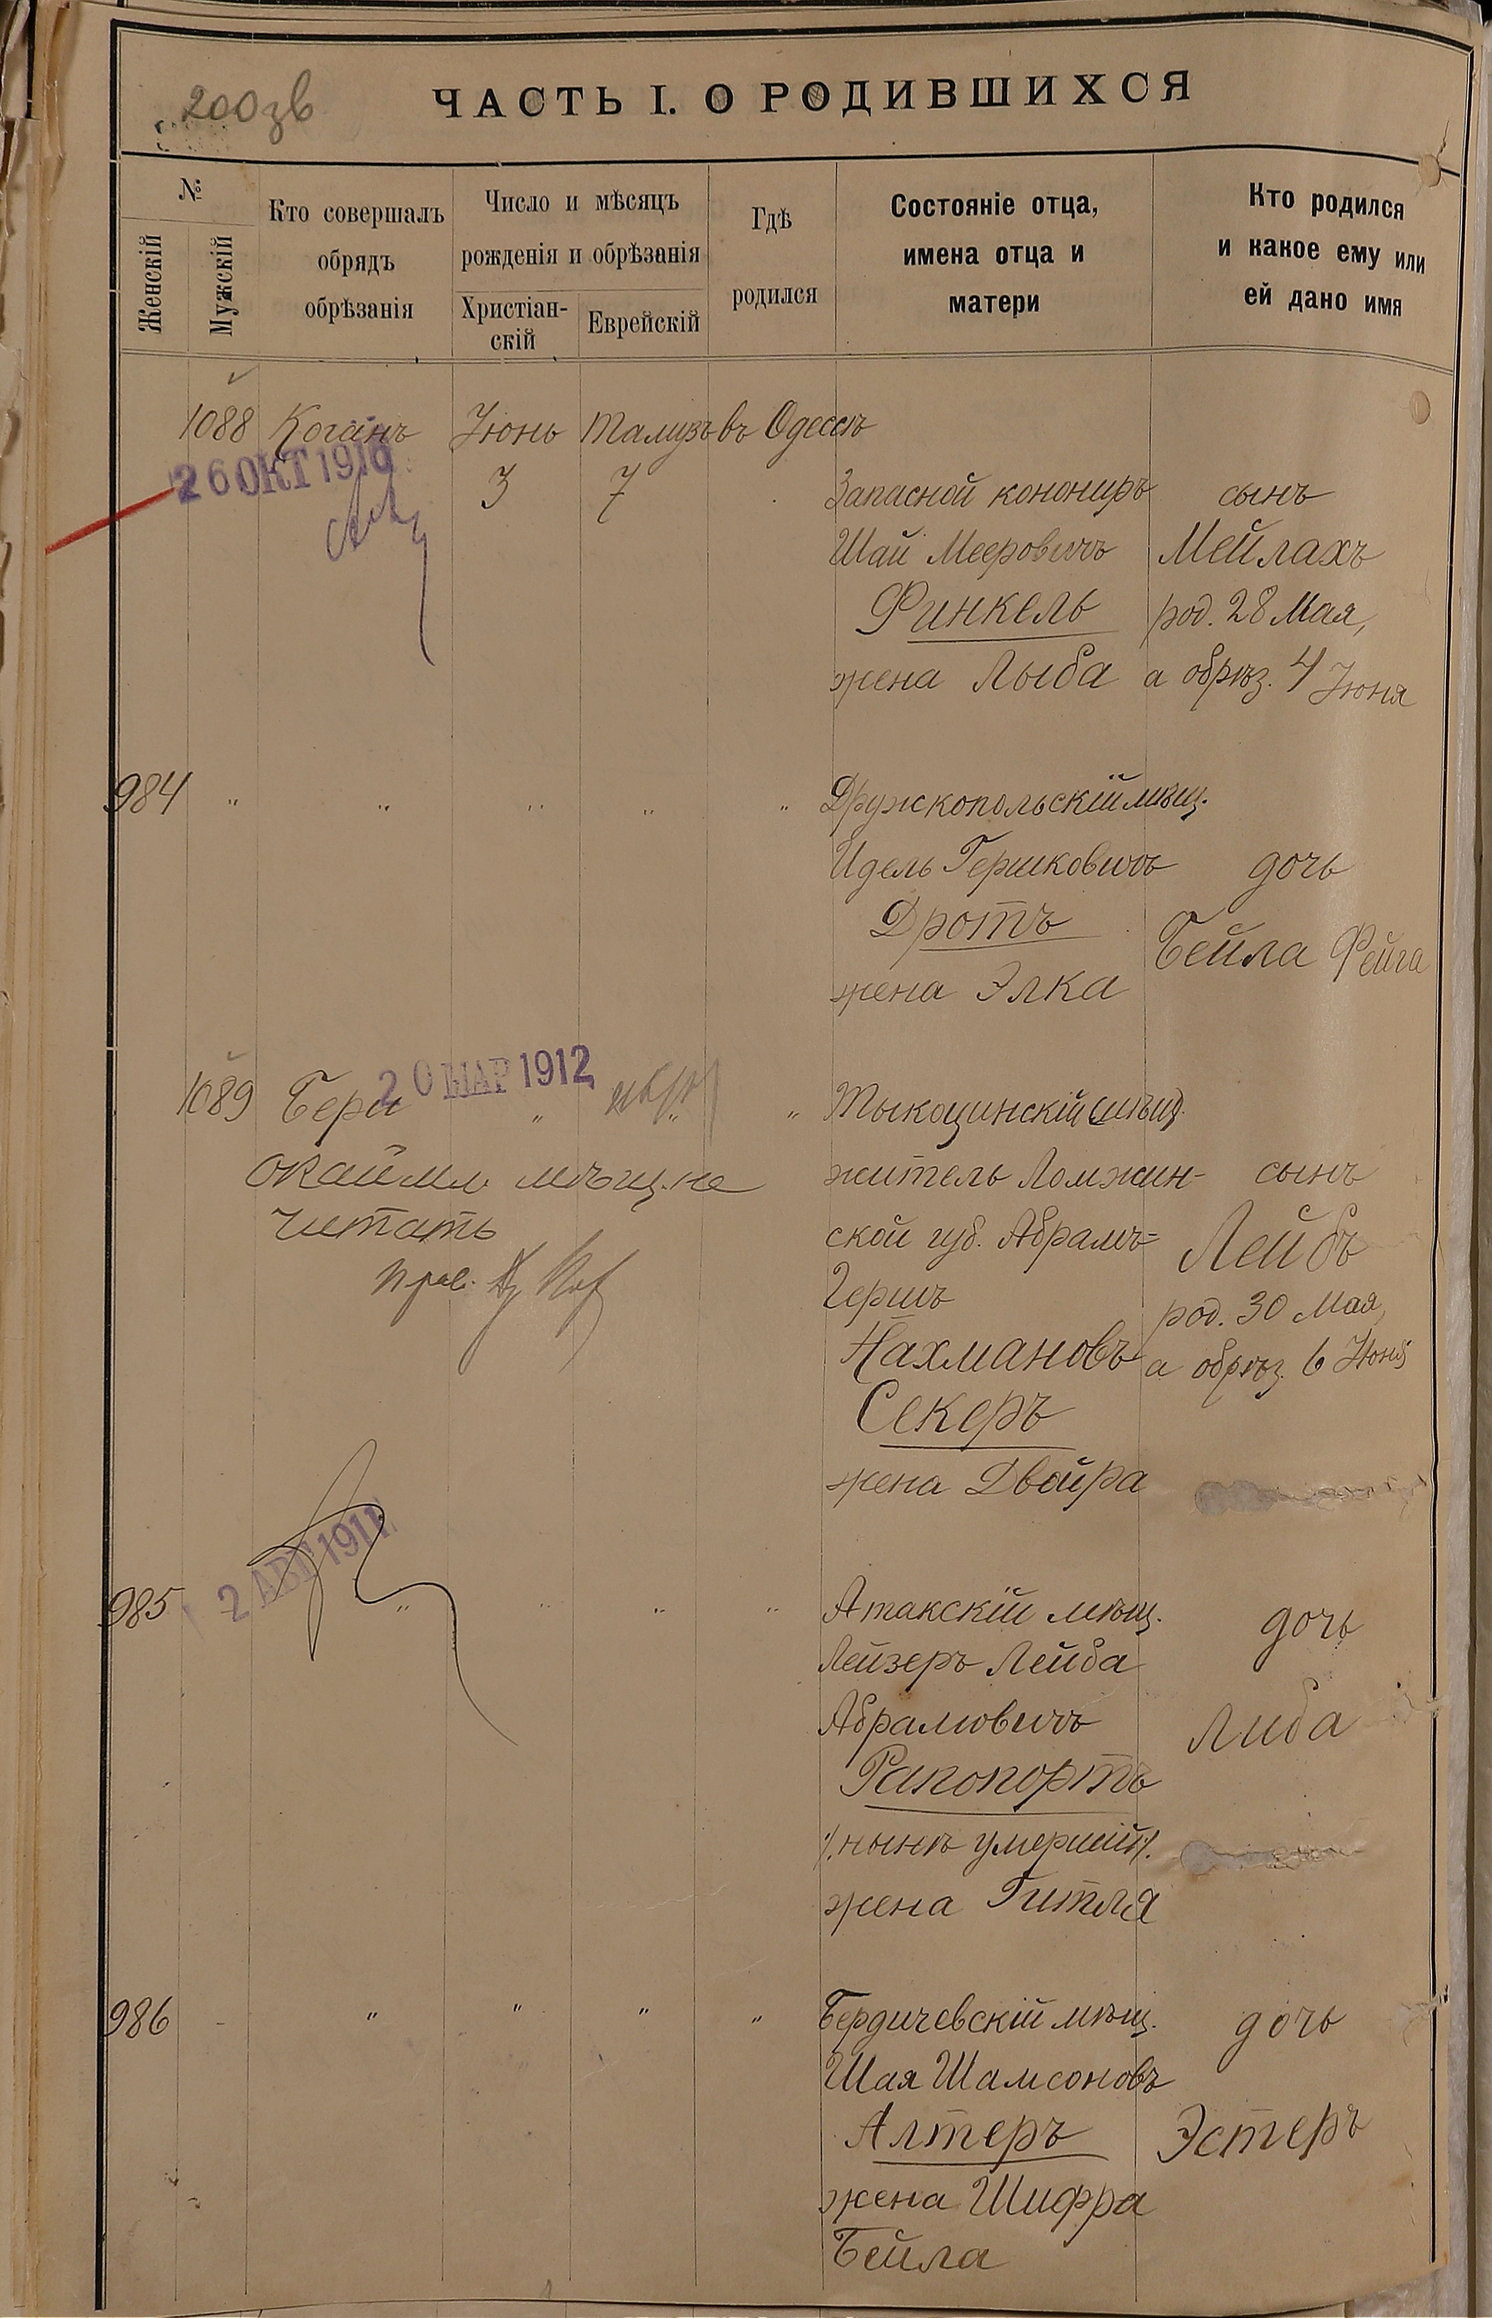 200зв
ЧАСТЬ I. О РОДИВШИХСЯ
№
Женскій
Мужскій
Кто совершалъ
обрядъ
обрѣзанія
Число и мѣсяцъ
рожденія и обрѣзанія
Христіан-
скій
Еврейскій
Гдѣ
родился
Состояніе отца,
имена отца и
матери
Кто родился
и какое ему или
ей дано имя
1088 Коганъ Іюнь Тамузъ въ Одессѣ
26 ОКТ 1910
3 7
Запасной конониръ сынъ
Шай Мееровичъ Мейлахъ
Финкель род. 28 Мая,
жена Лыба а обрѣз. 4 Іюня
984 " " " " " Дружкопольскій мѣщ.
Идель Гершковичъ дочь
Дротъ
Бейла Фейга
жена Элка
20 МАР 1912
1089 Бери " " " Тыкоцинскій (мѣщ)
окаймл. мѣщ. не
читать
житель Ломжин- сынъ
ской губ. Абрамъ- Лейбъ
Гершъ род. 30 Мая,
Нахмановъ а обрѣз. 6 Іюня
Секеръ
жена Двойра
2 АВГ 1911
985 " " " " Атакскій мѣщ. дочь
Лейзеръ Лейба
Абрамовичъ Либа
Рапопортъ
/.нынѣ умершій/.
жена Гитля
986 - " " " " Бердичевскій мѣщ. дочь
Шая Шамсоновъ
Алтеръ Эстеръ
жена Шифра
Бейла